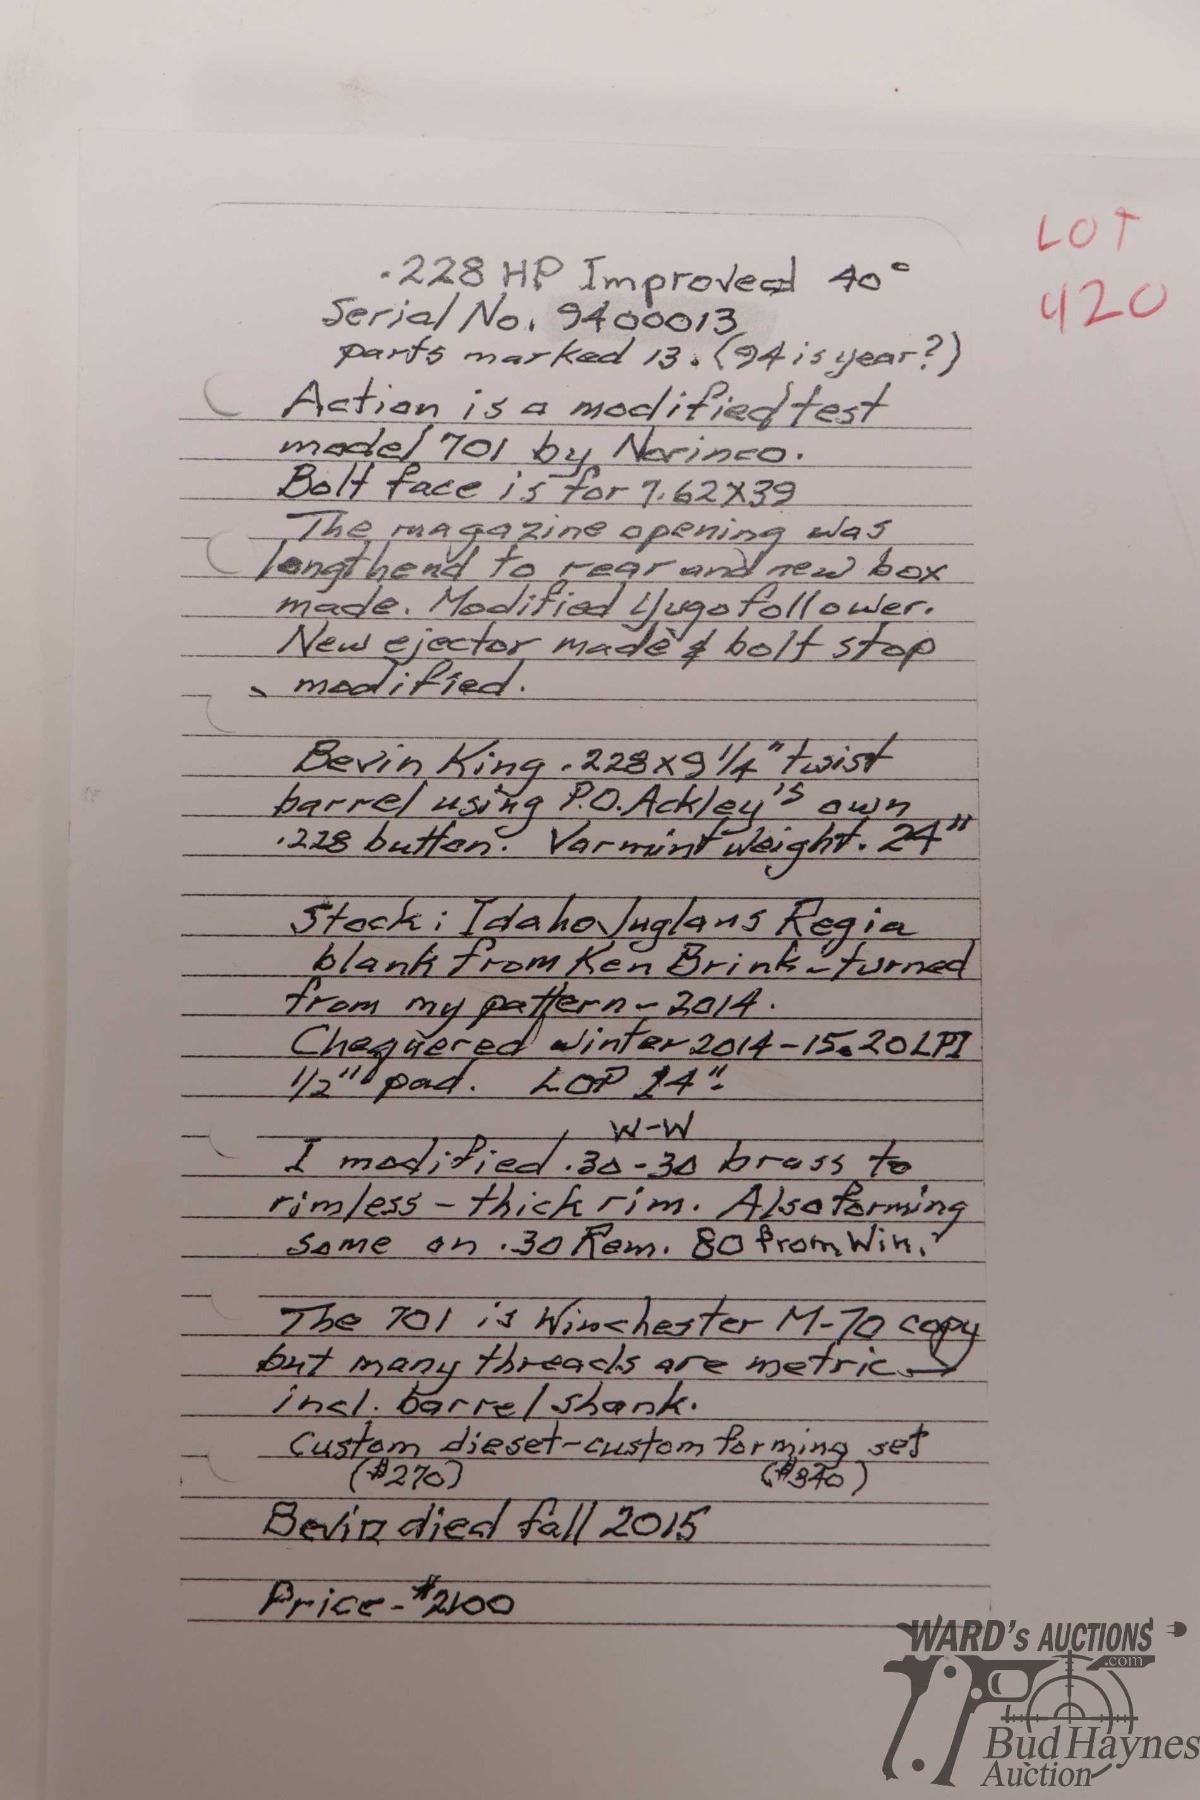 LOT
420
.228 HP Improved 40°
Serial No. 9400013
parts marked 13. (94 is year?)
Action is a modified test
model 701 by Norinco.
Bolt face is for 7.62X39
The magazine opening was
lengthend to rear and new box
made. Modified Yugo follower.
New ejector made & bolt stop
modified.
Bevin King .228 x 9 1/4" twist
barrel using P.O. Ackley's own
.228 button. Varmint weight. 24"
Stock: Idaho Juglans Regia
blank from Ken Brink - turned
from my pattern - 2014.
Chequered winter 2014-15. 20 LPI
1/2" pad. LOP 14".
W-W
I modified .30-30 brass to
rimless - thick rim. Also forming
some on .30 Rem. 80 from Win.
The 701 is Winchester M-70 copy
but many threads are metric
incl. barrel shank.
Custom dieset - custom forming set
($270) ($340)
Bevin died fall 2015
Price - $2100
WARD's AUCTIONS
.com
Bud Haynes
Auction